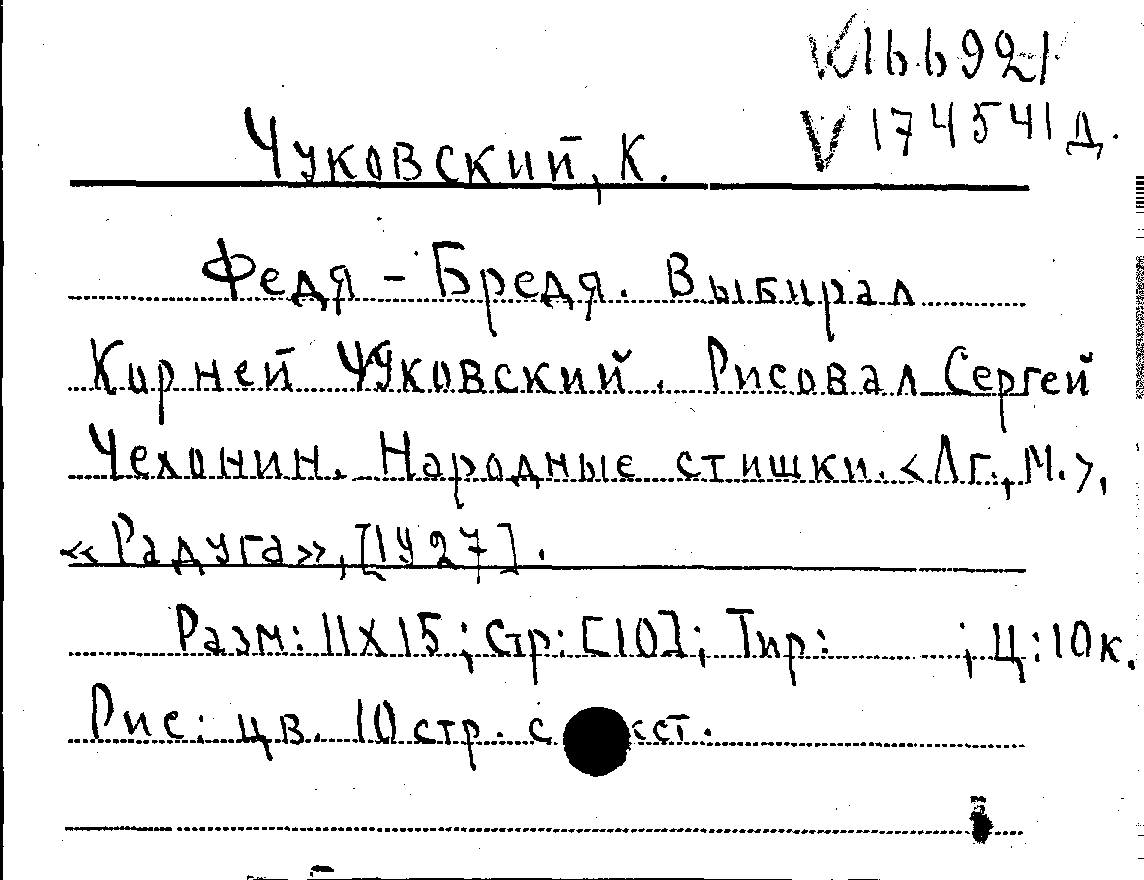 V 166921
V 174541 Д.
Чуковский, К.
Федя - Бредя. Выбирал
Корней Чуковский. Рисовал Сергей
Чехонин. Народные стишки. <Лг., М.>,
«Радуга», [1927].
Разм: 11х15; Стр: [10]; Тир: ; Ц: 10 к.
Рис: цв. 10 стр. с кст.